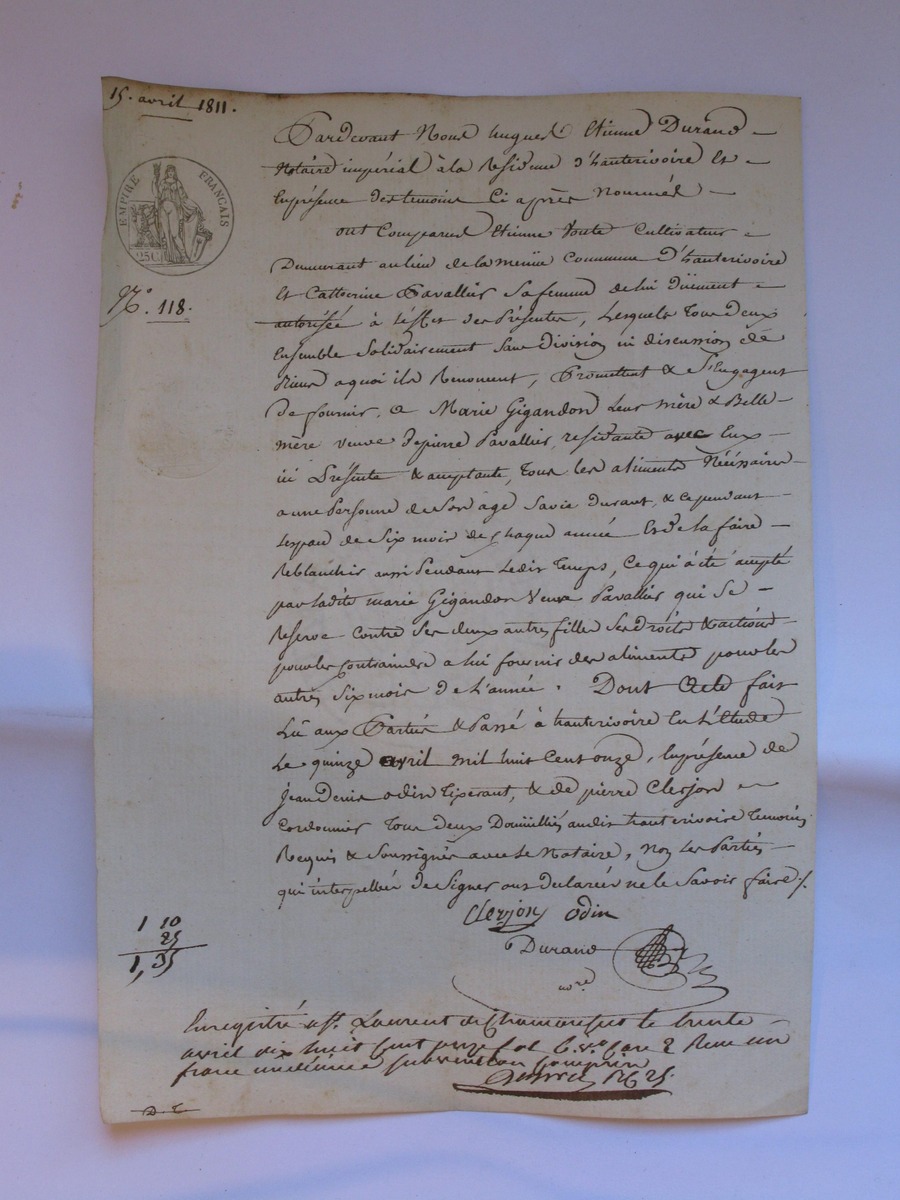 15. avril 1811.
EMPIRE FRANÇAIS
25 C.
N.° 118.
Pardevant Nous hugues Etienne Durand
Notaire impérial à la Residence d'hauterivoire Et
En présence des temoins Ci après Nommés
ont Comparus Etienne Voute Cultivateur
Demeurant au lieu de la menüe Commune D'hauterivoire
Et Catherine Pavallier sa femme de lui Düement
autorisée à L'éffet des Présentes, Lesquels Tous deux
Ensemble Solidairement Sans Division ni discussion de
Biens a quoi ils Renoncent, Promettent & S'Engagent
de fournir, a Marie Gigandon Leur mère & Belle
mère veuve de pierre Pavallier, residante avec Eux
ici Présente & acceptante, Tous les aliments Nécéssaires
a une Personne de Son age Sa vie Durant, & ce pendant
Lespace de Six mois de Chaque année Et de la faire
Reblanchir aussi Pendant Ledit Temps, Ce qui à été accepté
par Ladite marie Gigandon Veuve Pavallier qui Se
Reserve Contre Ses deux autres filles Ses Droits & actions
pour les Contraindre a lui fournir des aliments pour les
autres Six mois de L'année. Dont Acte fait
Lû aux Parties & Passé à hauterivoire En L'étude
Le quinze avril mil huit Cent onze, En présence de
Jean Denis odin Tisserant, & de pierre Clerjon
Cordonnier Tous deux Domiciliés audit hauterivoire Temoins
Requis & Soussignés avec Le Notaire, Non Les Parties
qui interpellées De Signer ont declarées ne le Savoir faire ./.
Clerjon odin
Durand
no.re
1 10
25
1, 35
Enregistré à St. Laurent de Chamousset le trente
avril dix huit Cent onze fol. v.o Case 2 Reçu un
franc dix Subvention Comprise
D. T.